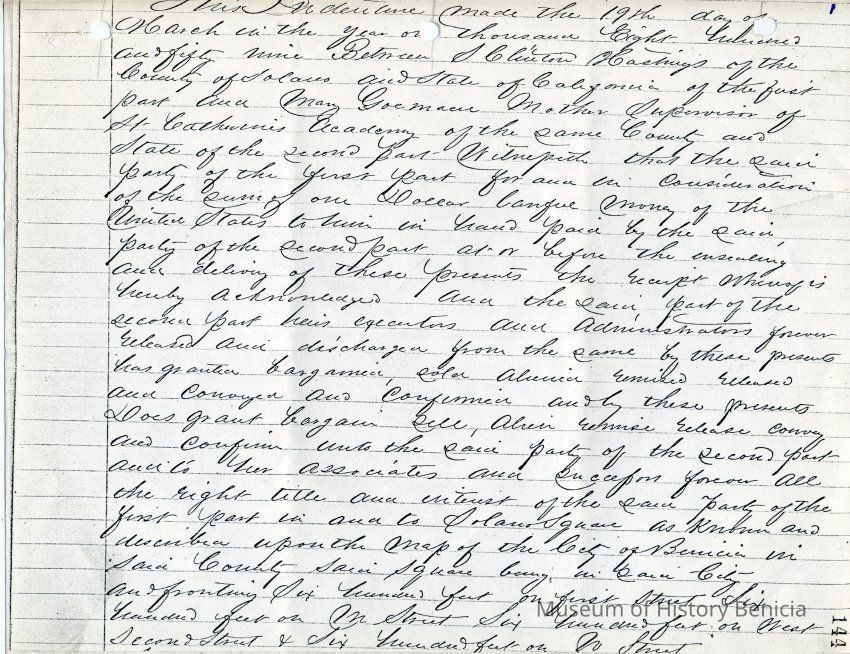 This Indenture made the 19th day of
March in the year on thousand Eight hundred
and fifty nine Between S Clinton Hastings of the
County of Solano and State of California of the first
part and Mary Goemaere Mother Supervisor of
St Catherines Academy of the same County and
State of the second part Witnesseth that the said
party of the first part for and in consideration
of the sum of one Dollar lawful money of the
United States to him in hand paid by the said
party of the second part at or before the ensealing
and delivery of these presents the receipt whereof is
hereby acknowledged and the said part of the
second part heirs executors and administrators forever
released and discharged from the same by these presents
has granted bargained, sold aliened remised released
and conveyed and confirmed and by these presents
Does grant bargain sell, alien remise release convey
and confirm unto the said party of the second part
and to her associates and successors forever all
the right title and interest of the said party of the
first part in and to Solano Square as known and
described upon the map of the City of Benicia in
said County said square being in said City
and fronting Six hundred feet on first street Six
hundred feet on M Street Six hundred feet on West
Second Street & Six hundred feet on N Street
Museum of History Benicia
144